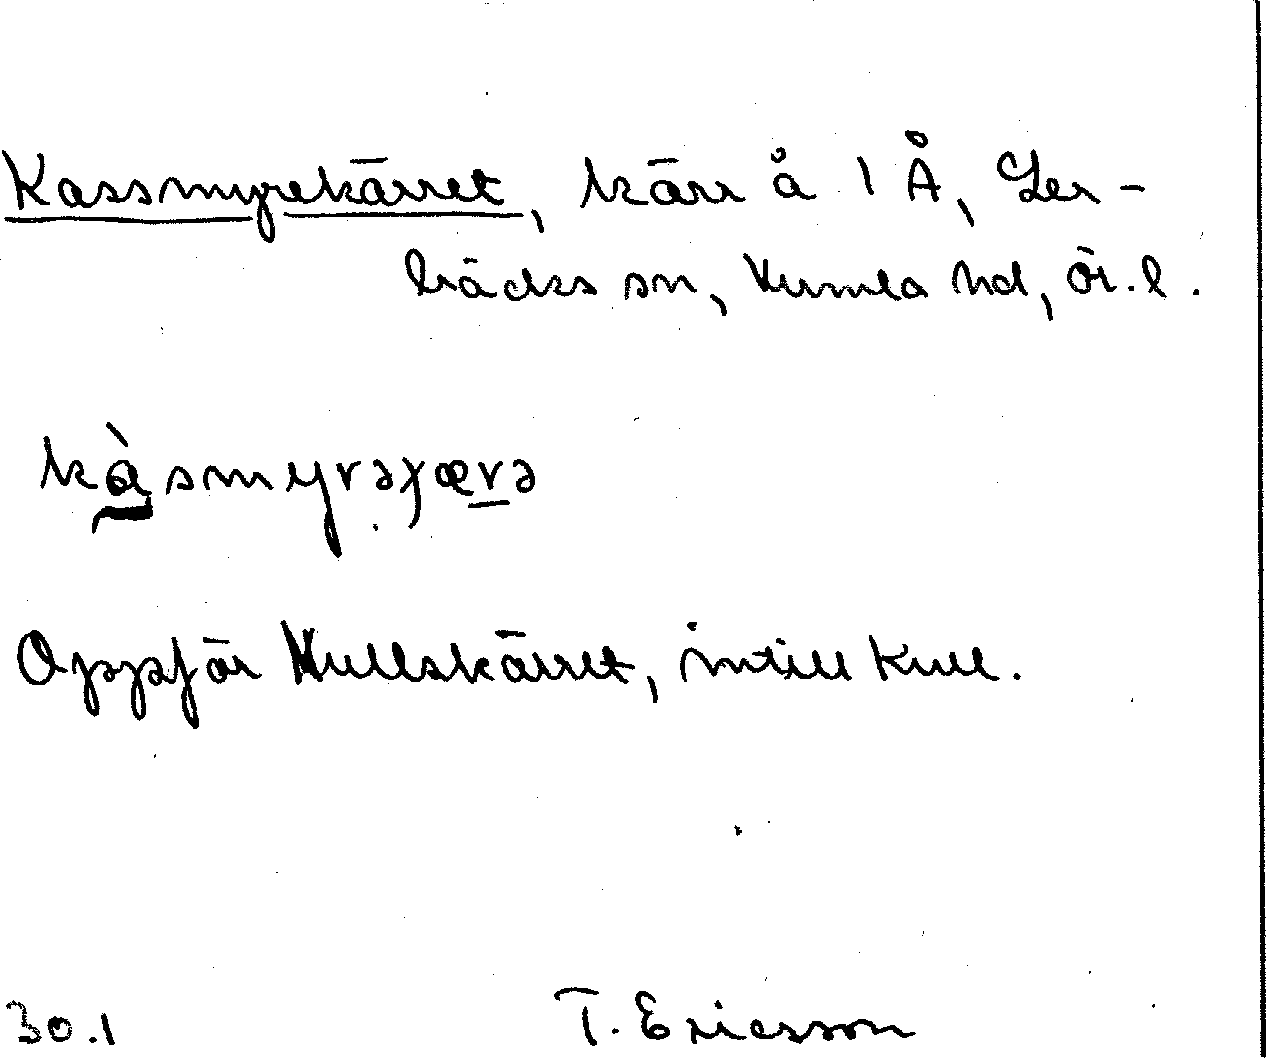 Kassmyrekärret, kärr å 1 Å, Ler-
bäcks sn, Kumla hd, Ör. l.
kàsmyrəfærə
Oppför Kullskärret, intill Kull.
30.1 T. Ericsson